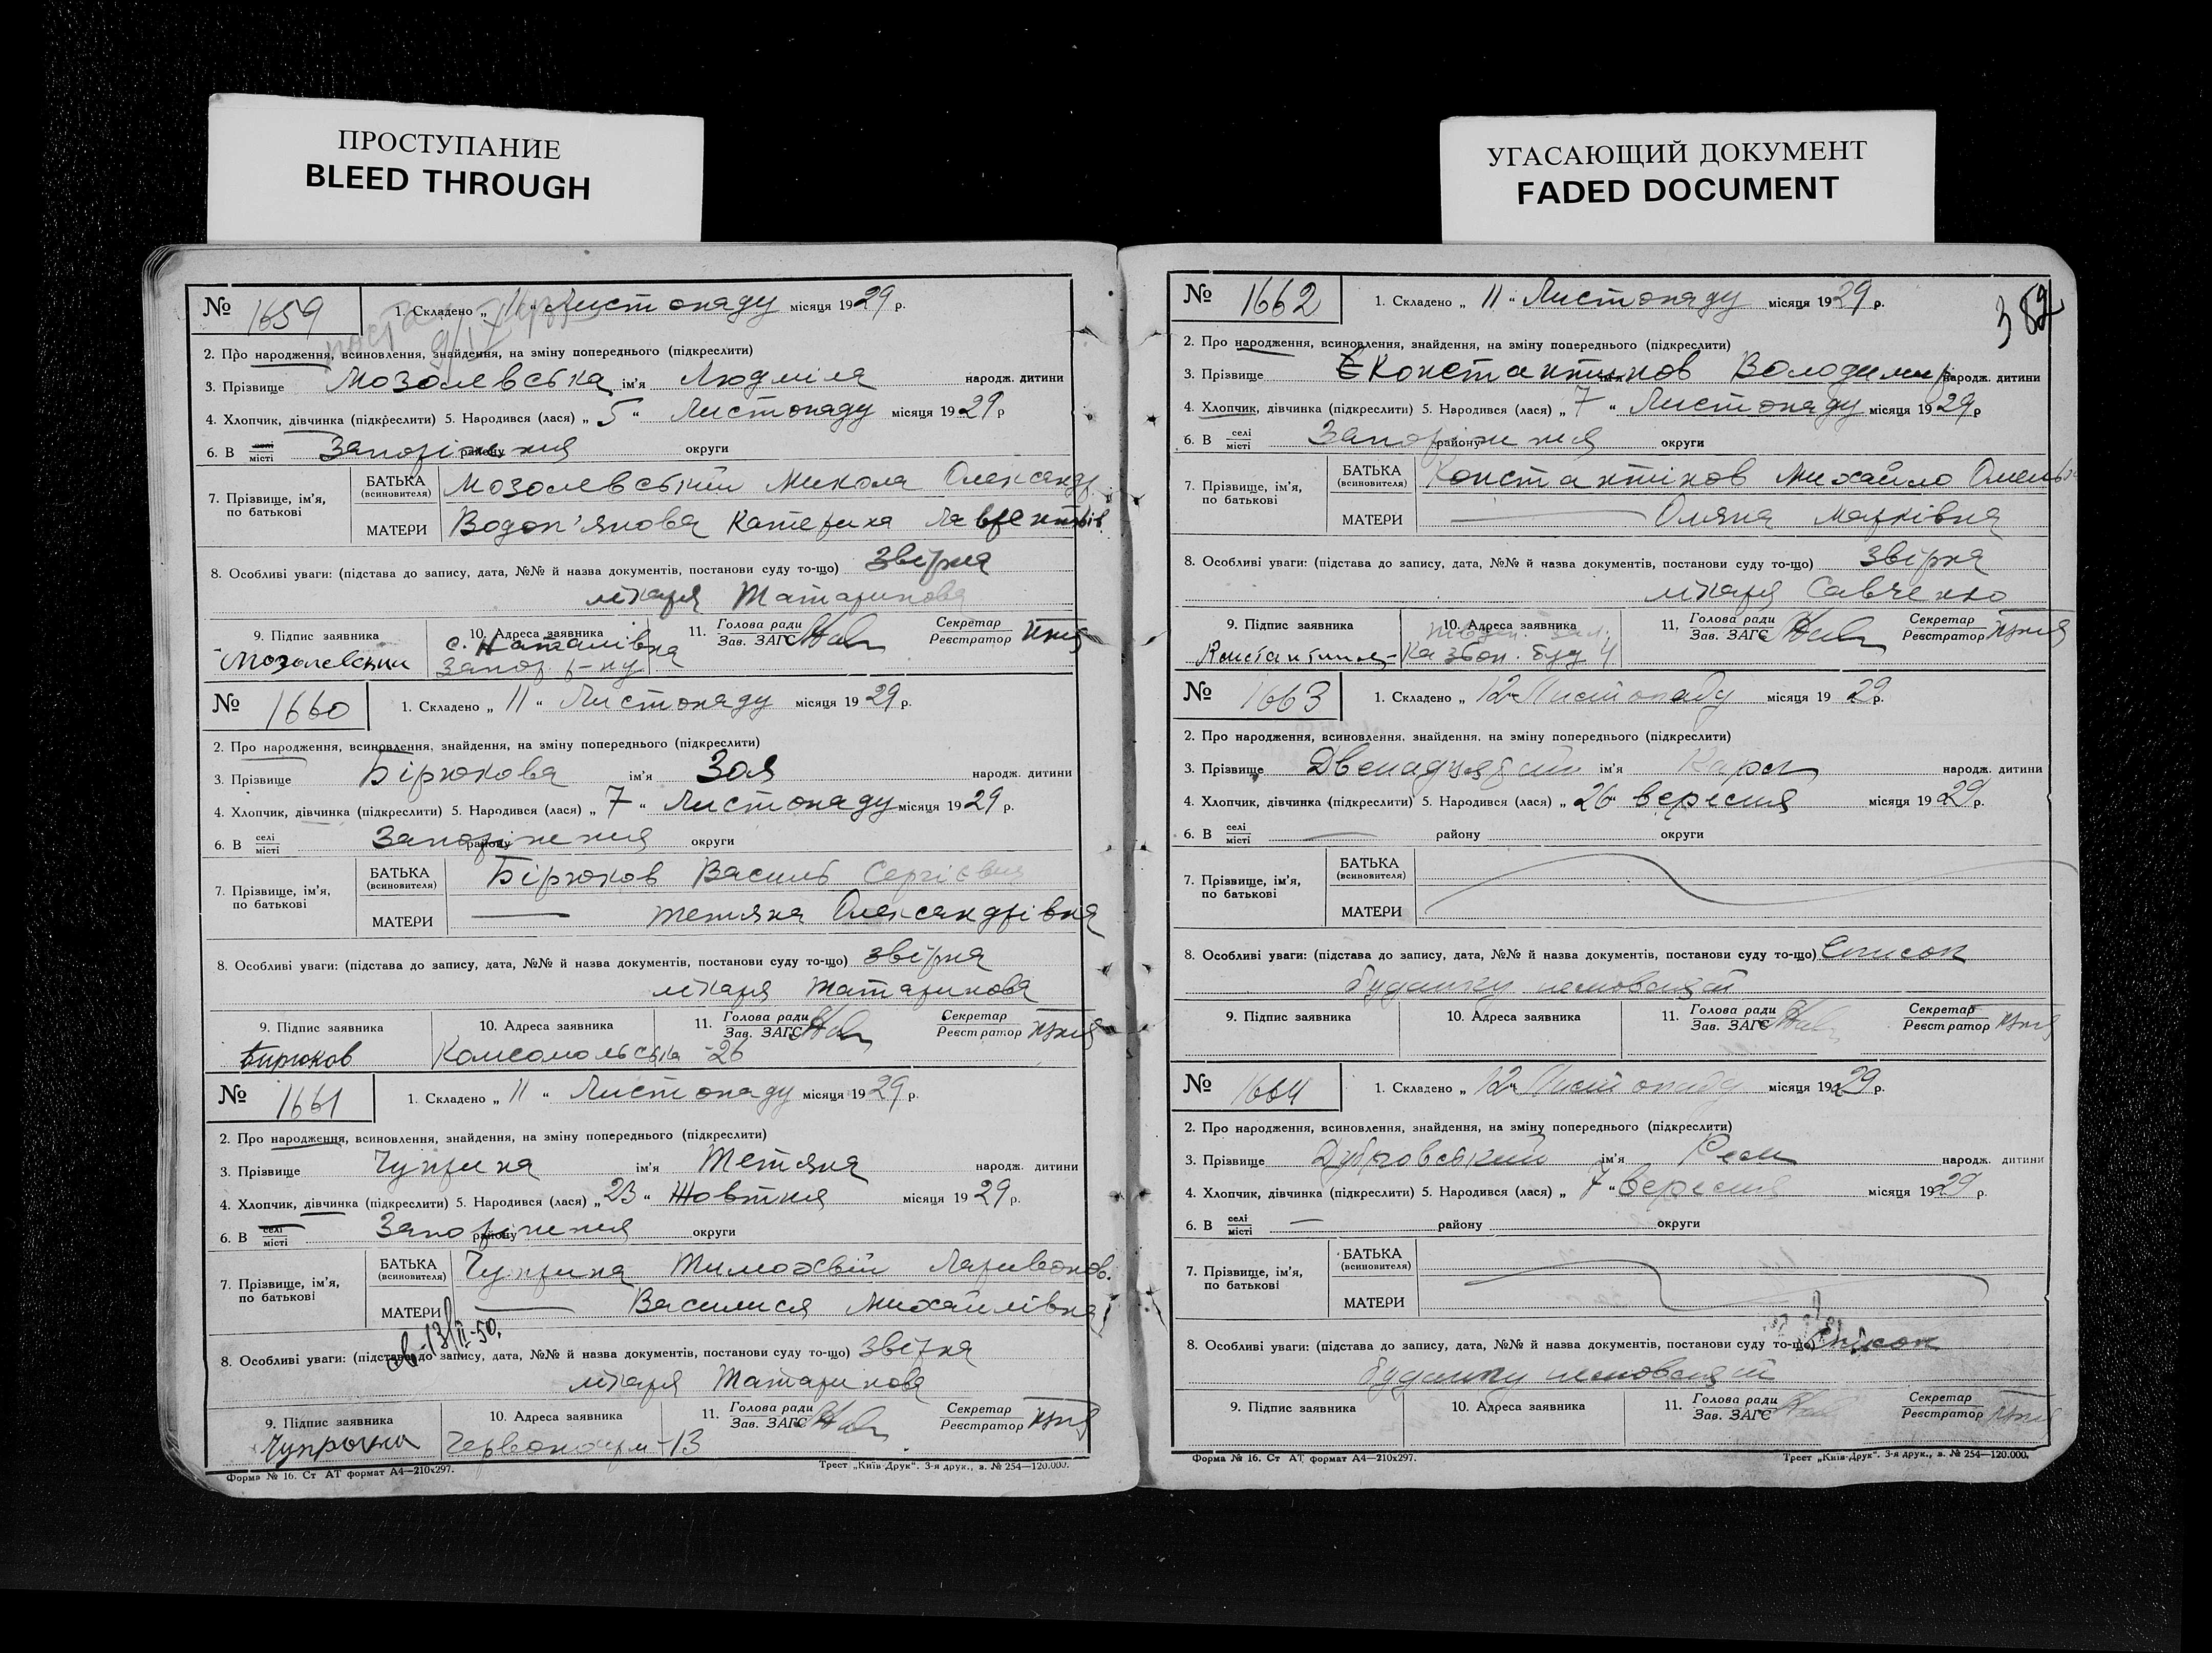 ПРОСТУПАНИЕ
BLEED THROUGH
№ 1659
1. Складено „ 11 “ Листопаду місяця 1929 р.
2. Про народження, всиновлення, знайдення, на зміну попереднього (підкреслити)
3. Прізвище Мозолевська ім'я Людміла народж. дитини
4. Хлопчик, дівчинка (підкреслити) 5. Народився (лася) „ 5 “ Листопаду місяця 1929 р
6. В селі місті Запоріжжя району округи
7. Прізвище, ім'я, по батькові
БАТЬКА (всиновителя) Мозолевський Микола Олександр
МАТЕРИ Водоп'янова Катерина Лаврентьів
8. Особливі уваги: (підстава до запису, дата, №№ й назва документів, постанови суду то-що) Звірка
лікаря Татаринова
9. Підпис заявника 10. Адреса заявника 11. Голова ради Зав. ЗАГС Секретар Реєстратор
Мозолевський с. Наталівка
Запор. р-ну
№ 1660
1. Складено „ 11 “ Листопаду місяця 1929 р.
2. Про народження, всиновлення, знайдення, на зміну попереднього (підкреслити)
3. Прізвище Бірюкова ім'я Зоя народж. дитини
4. Хлопчик, дівчинка (підкреслити) 5. Народився (лася) „ 7 “ Листопаду місяця 1929 р.
6. В селі місті Запоріжжя району округи
7. Прізвище, ім'я, по батькові
БАТЬКА (всиновителя) Бірюков Василь Сергієвич
МАТЕРИ — Тетяна Олександрівна
8. Особливі уваги: (підстава до запису, дата, №№ й назва документів, постанови суду то-що) звірка
лікаря Татаринова
9. Підпис заявника 10. Адреса заявника 11. Голова ради Зав. ЗАГС Секретар Реєстратор
Бирюков Комсомольська -26
№ 1661
1. Складено „ 11 “ Листопаду місяця 1929 р.
2. Про народження, всиновлення, знайдення, на зміну попереднього (підкреслити)
3. Прізвище Чуприна ім'я Тетяна народж. дитини
4. Хлопчик, дівчинка (підкреслити) 5. Народився (лася) „ 23 “ Жовтня місяця 1929 р.
6. В селі місті Запоріжжя району округи
7. Прізвище, ім'я, по батькові
БАТЬКА (всиновителя) Чуприна Тимофвій Ларивонов.
МАТЕРИ — Василися Михайлівна
13/II-50.
8. Особливі уваги: (підстава до запису, дата, №№ й назва документів, постанови суду то-що) Звірка
лікаря Татаринова
9. Підпис заявника 10. Адреса заявника 11. Голова ради Зав. ЗАГС Секретар Реєстратор
-13
Форма № 16. Ст АТ формат А4—210х297. Трест „Київ-Друк“. 3-я друк., з. № 254—120.000.
УГАСАЮЩИЙ ДОКУМЕНТ
FADED DOCUMENT
382
№ 1662
1. Складено „ 11 “ Листопаду місяця 1929 р.
2. Про народження, всиновлення, знайдення, на зміну попереднього (підкреслити)
3. Прізвище Константинов ім'я Володимир народж. дитини
4. Хлопчик, дівчинка (підкреслити) 5. Народився (лася) „ 7 “ Листопаду місяця 1929 р
6. В селі місті Запоріжжя району округи
7. Прізвище, ім'я, по батькові
БАТЬКА (всиновителя) Константінов Михайло
МАТЕРИ — Оляна Марківна
8. Особливі уваги: (підстава до запису, дата, №№ й назва документів, постанови суду то-що) звірка
лікаря Савченко
9. Підпис заявника 10. Адреса заявника 11. Голова ради Зав. ЗАГС Секретар Реєстратор
буд 4
№ 1663
1. Складено „ 12 “ Листопаду місяця 1929 р.
2. Про народження, всиновлення, знайдення, на зміну попереднього (підкреслити)
3. Прізвище Двенадцятий ім'я Карл народж. дитини
4. Хлопчик, дівчинка (підкреслити) 5. Народився (лася) „ 26 “ вересня місяця 1929 р.
6. В селі місті — району округи
7. Прізвище, ім'я, по батькові
БАТЬКА (всиновителя)
МАТЕРИ
8. Особливі уваги: (підстава до запису, дата, №№ й назва документів, постанови суду то-що) Список
будинку немовлят
9. Підпис заявника 10. Адреса заявника 11. Голова ради Зав. ЗАГС Секретар Реєстратор
№ 1664
1. Складено „ 12 “ Листопаду місяця 1929 р.
2. Про народження, всиновлення, знайдення, на зміну попереднього (підкреслити)
3. Прізвище Дубровський ім'я народж. дитини
4. Хлопчик, дівчинка (підкреслити) 5. Народився (лася) „ 7 “ вересня місяця 1929 р.
6. В селі місті — району округи
7. Прізвище, ім'я, по батькові
БАТЬКА (всиновителя)
МАТЕРИ
8. Особливі уваги: (підстава до запису, дата, №№ й назва документів, постанови суду то-що) Список
будинку немовлят
9. Підпис заявника 10. Адреса заявника 11. Голова ради Зав. ЗАГС Секретар Реєстратор
Форма № 16. Ст АТ формат А4—210х297. Трест „Київ-Друк“. 3-я друк., з. № 254—120.000.